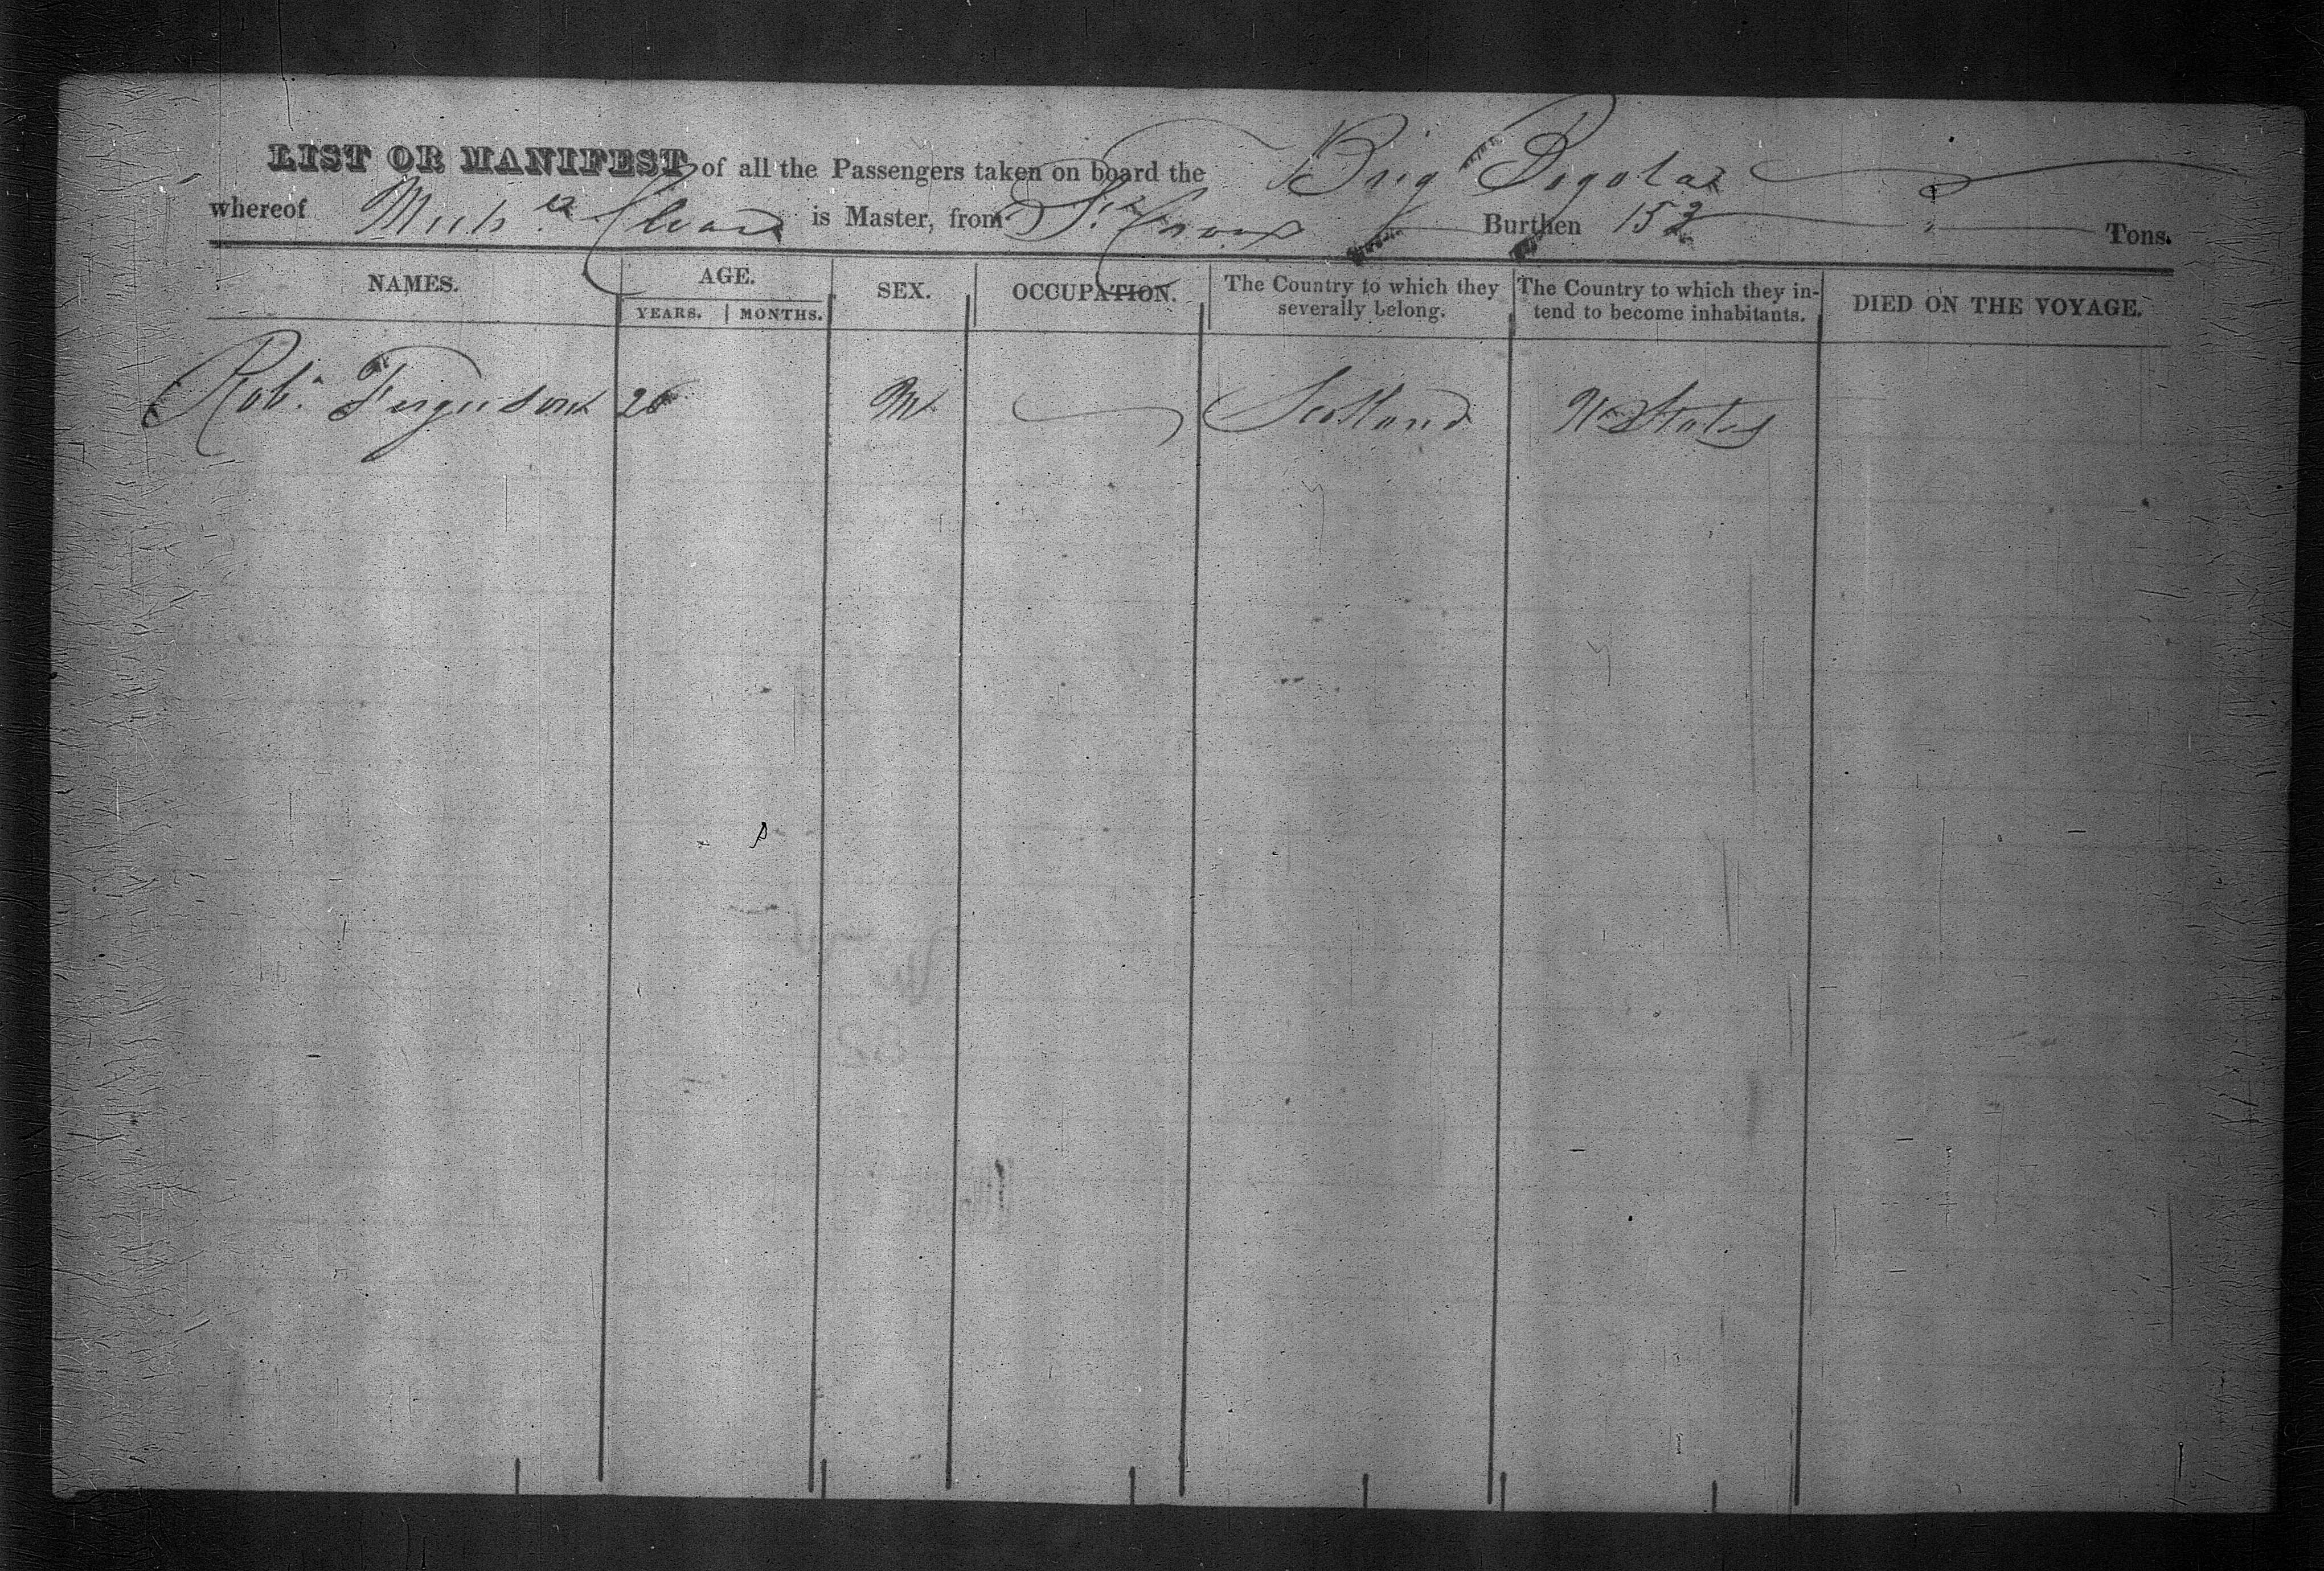 LIST OR MANIFEST of all the Passengers taken on board the Brig Bogota
whereof is Master, from St Croix Burthen 152 Tons.
NAMES. AGE. SEX. OCCUPATION. The Country to which they severally belong. The Country to which they intend to become inhabitants. DIED ON THE VOYAGE.
YEARS. MONTHS.
Robt. Ferguson M Scotland U States